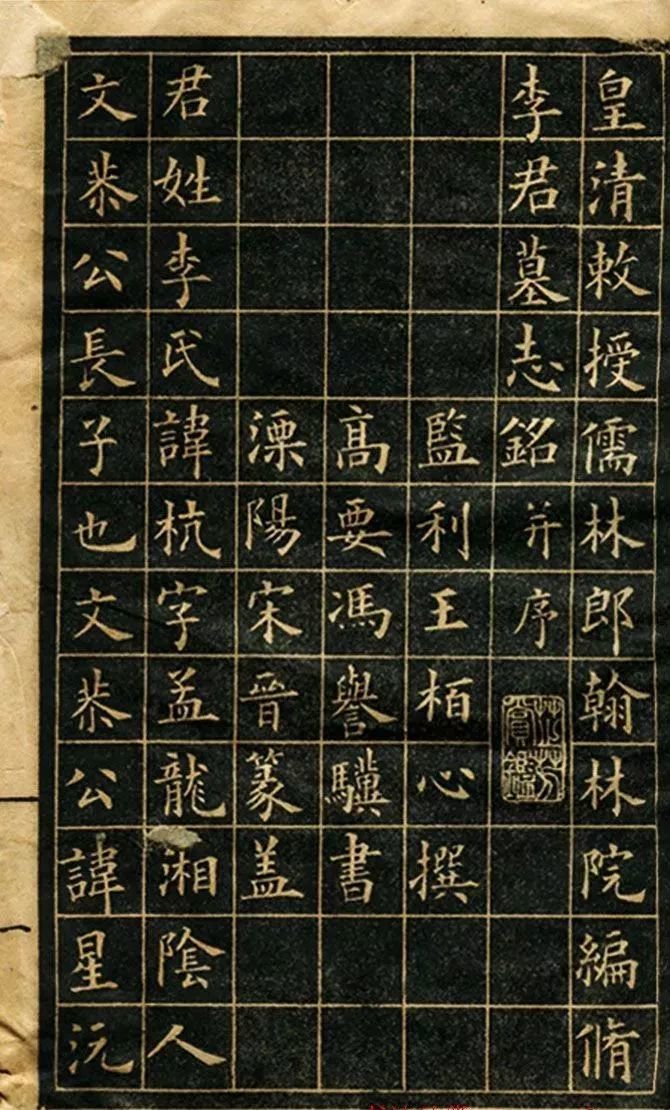 皇清敕授儒林郎翰林院編脩
李君墓志銘并序
監利王栢心撰
高要馮譽驥書
溧陽宋晉篆盖
君姓李氏諱杭字孟龍湘陰人
文恭公長子也文恭公諱星沅